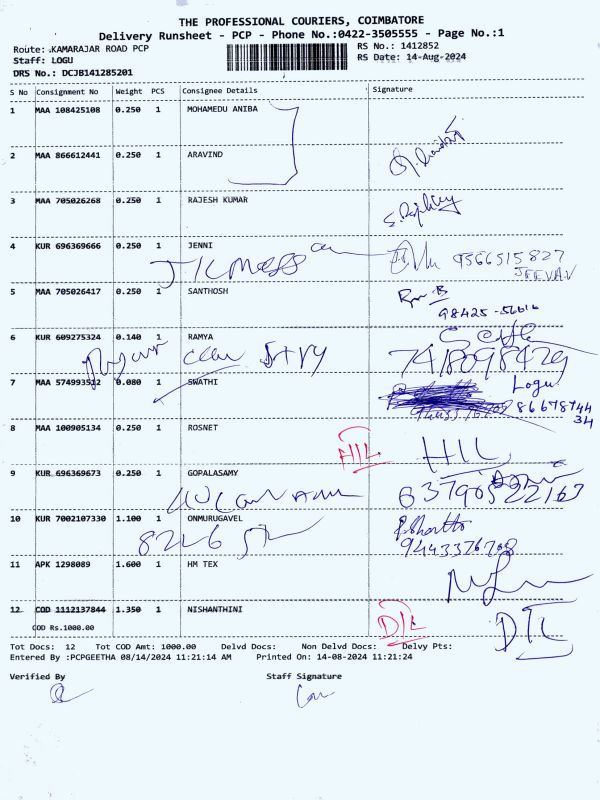 THE PROFESSIONAL COURIERS, COIMBATORE
Delivery Runsheet - PCP - Phone No.:0422-3505555 - Page No.:1
Route: KAMARAJAR ROAD PCP RS No.: 1412852
Staff: LOGU RS Date: 14-Aug-2024
DRS No.: DCJB141285201
S No Consignment No Weight PCS Consignee Details Signature
1 MAA 108425108 0.250 1 MOHAMEDU ANIBA
2 MAA 866612441 0.250 1 ARAVIND
3 MAA 705026268 0.250 1 RAJESH KUMAR
4 KUR 696369666 0.250 1 JENNI
9566515827
JEEVAN
5 MAA 705026417 0.250 1 SANTHOSH
6 KUR 609275324 0.140 1 RAMYA
7418098429
7 MAA 574993512 0.080 1 SWATHI Logu
8 MAA 100905134 0.250 1 ROSNET
HIL HIL
9 KUR 696369673 0.250 1 GOPALASAMY
10 KUR 7002107330 1.100 1 ONMURUGAVEL
9443376708
11 APK 1298089 1.600 1 HM TEX
12 COD 1112137844 1.350 1 NISHANTHINI
COD Rs.1000.00 DIL DIL
Tot Docs: 12 Tot COD Amt: 1000.00 Delvd Docs: Non Delvd Docs: Delvy Pts:
Entered By :PCPGEETHA 08/14/2024 11:21:14 AM Printed On: 14-08-2024 11:21:24
Verified By Staff Signature